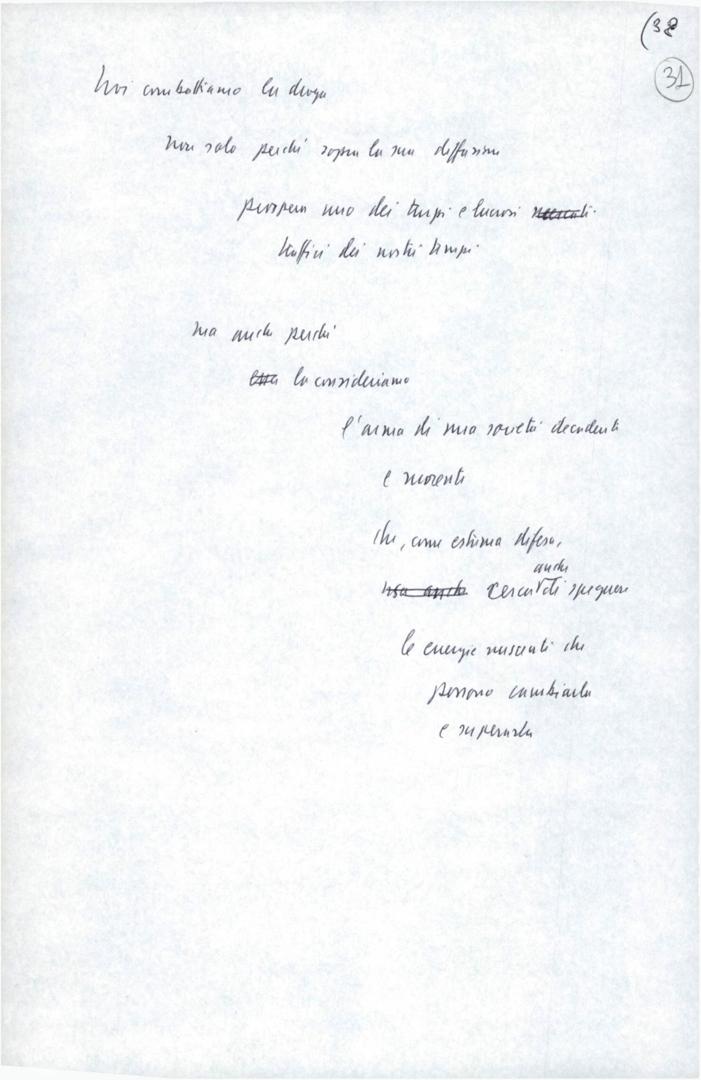 (38
31
Noi combattiamo la droga
non solo perché sopra la sua diffusione
prospera uno dei turpi e lucrosi mercati
traffici dei nostri tempi
ma anche perché
essa la consideriamo
l'arma di una società decadente
e morente
che, come estrema difesa,
anche
usa anche cerca di spegnere
le energie nascenti che
possono cambiarla
e superarla